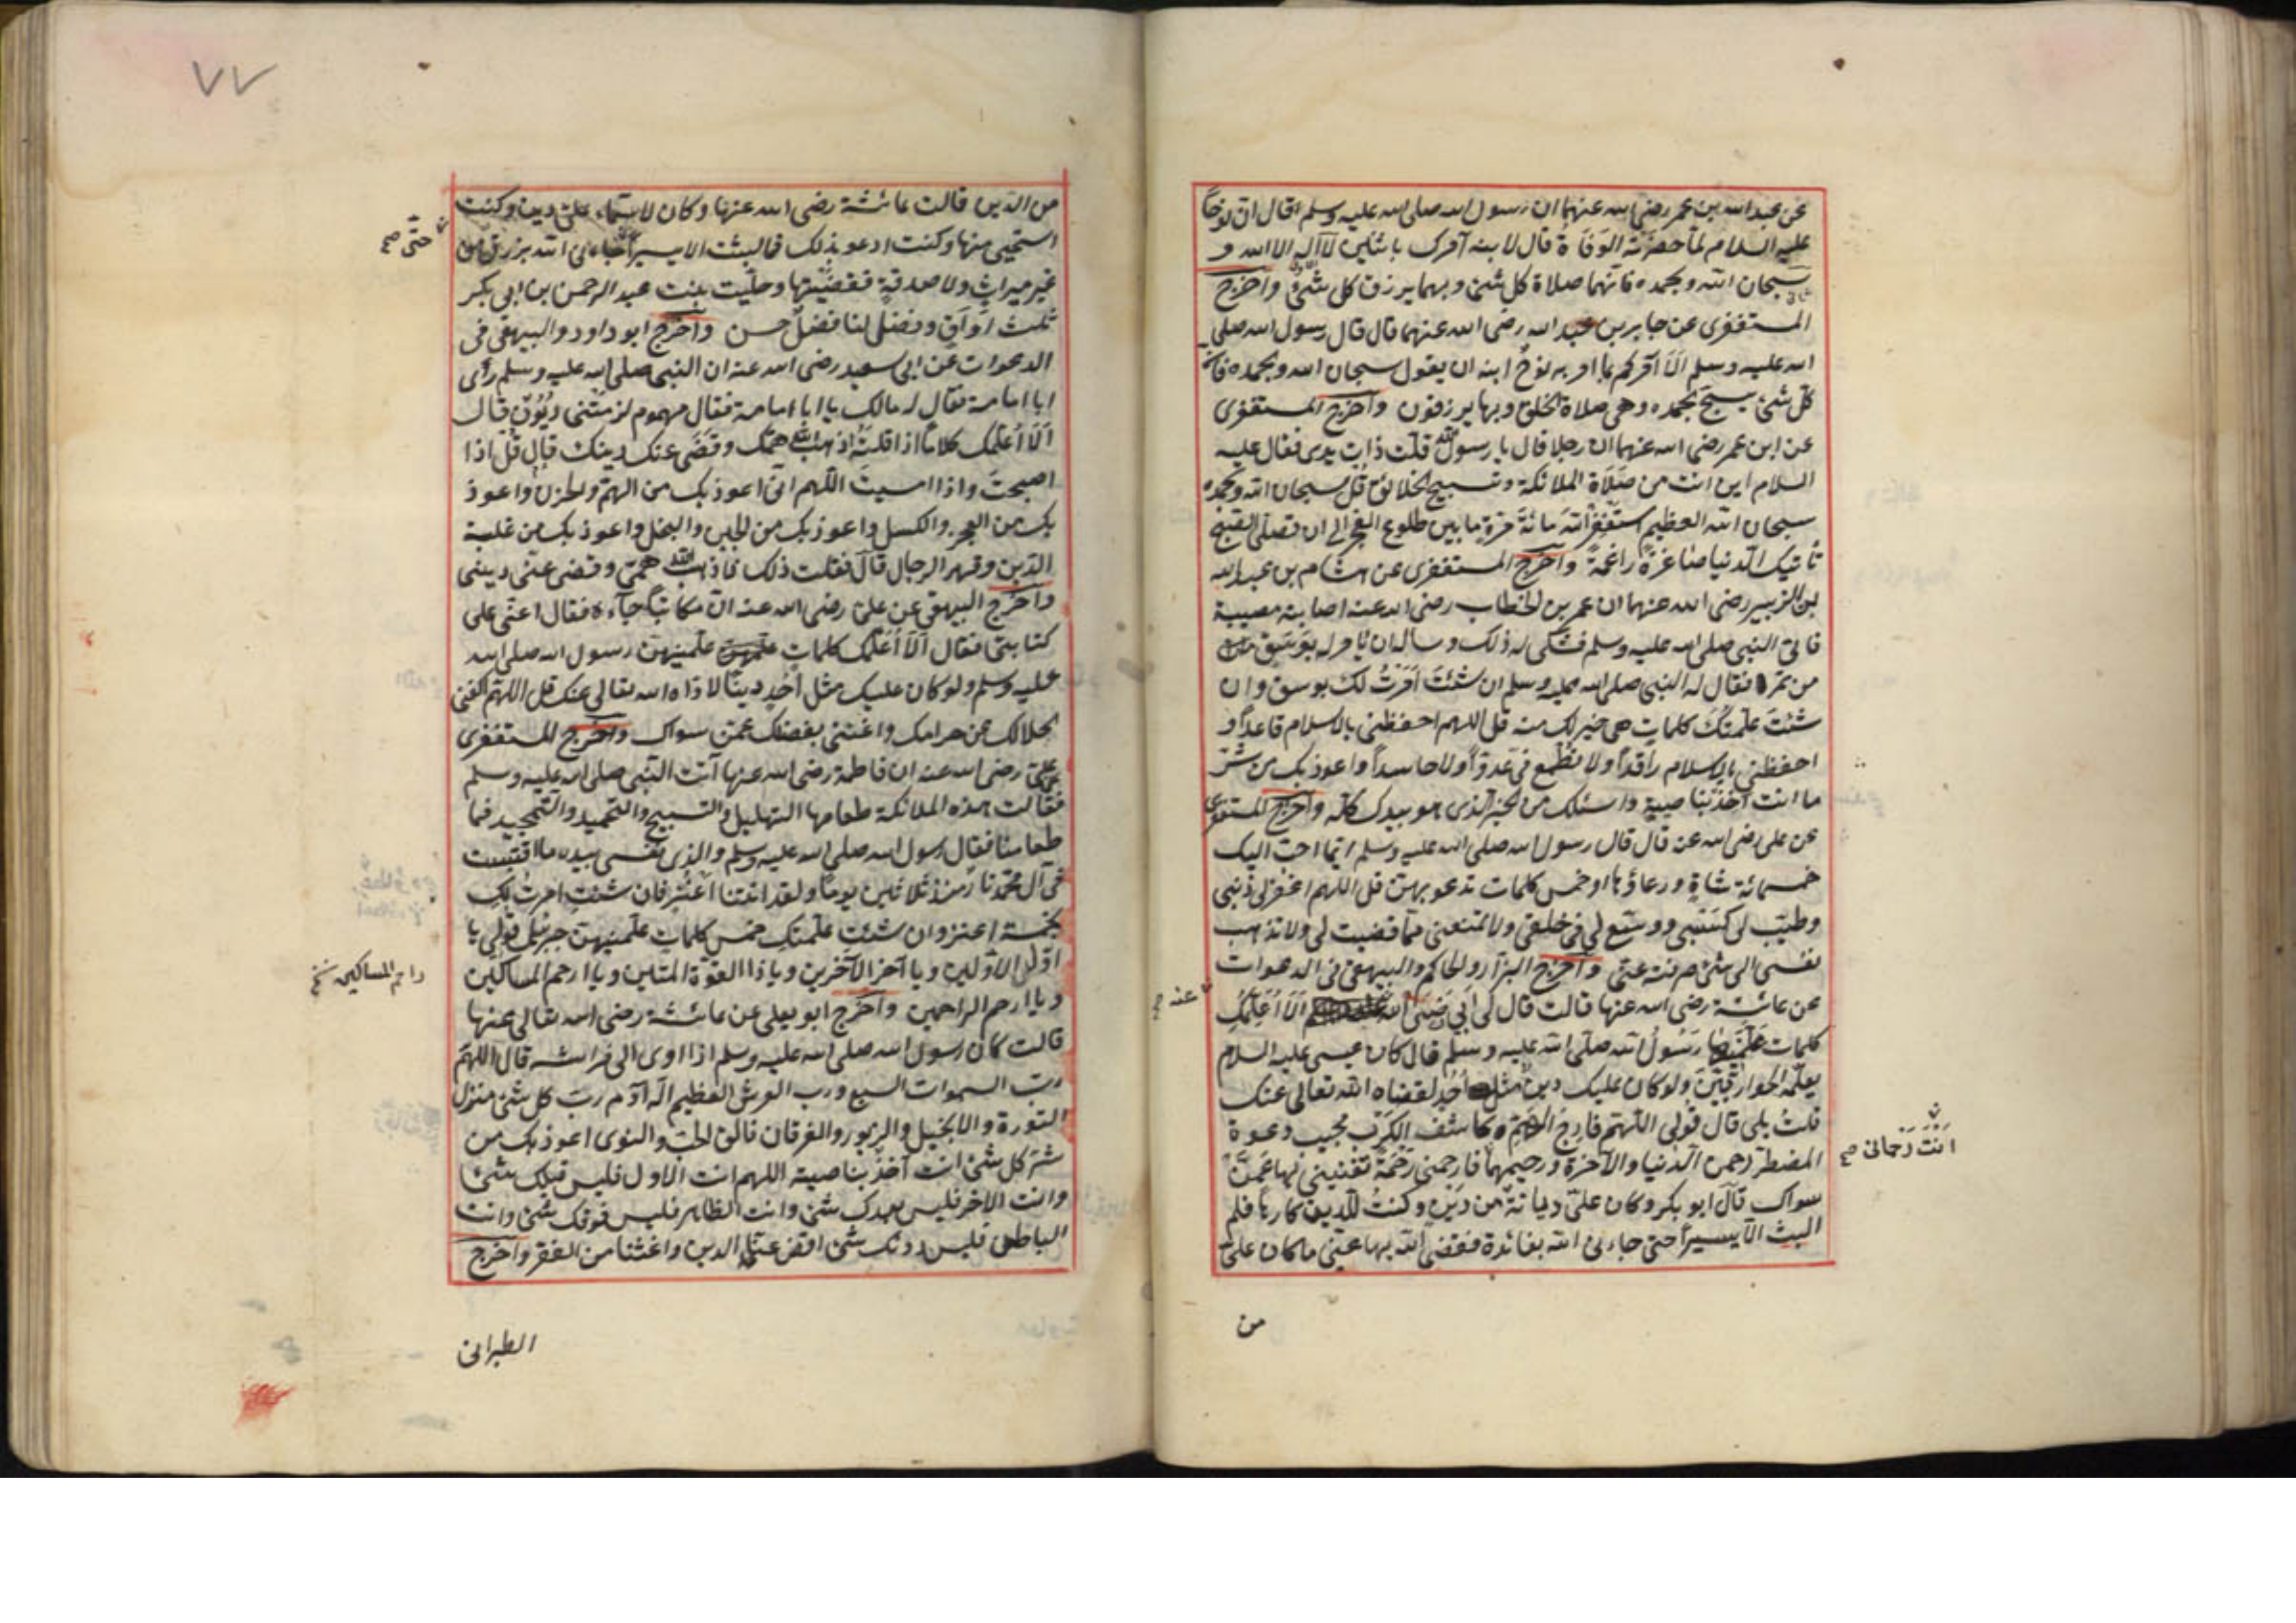 عن عبد الله بن عمر رضى الله عنهما ان رسول الله صلى الله عليه وسلم قال ان نوحاً
عليه السلام لما حضرته الوفاة قال لابنه آمرك باثنين لا اله الا الله و
سبحان الله وبحمده فانهما صلاة كل شئ وبهما يرزق كل شئ واخرج
المستغفرى عن جابر بن عبد الله رضى الله عنهما قال قال رسول الله صلى
الله عليه وسلم الا آمركم بما امر به نوح ابنه ان يقول سبحان الله وبحمده فان
كل شئ يسبح بحمده وهى صلاة الخلق وبها يرزقون واخرج المستغفرى
عن ابن عمر رضى الله عنهما ان رجلا قال يا رسول الله قلت ذات يدى فقال عليه
السلام اين انت من صلاة الملائكة وتسبيح الخلائق قل سبحان الله وبحمده
سبحان الله العظيم استغفر الله مائة مرة ما بين طلوع الفجر الى ان تصلى الصبح
تأتيك الدنيا صاغرة راغمة واخرج المستغفرى عن هشام بن عبد الله
بن الزبير رضى الله عنهما ان عمر بن الخطاب رضى الله عنه اصابته مصيبة
فاتى النبى صلى الله عليه وسلم فشكى له ذلك وساله ان يأمر له بوسق
من تمر فقال له النبى صلى الله عليه وسلم ان شئت امرت لك بوسق وان
شئت علمتك كلمات هى خير لك منه قل اللهم احفظنى بالاسلام قاعداً و
احفظنى بالاسلام راقداً ولا تطمع فى عدواً ولا حاسداً واعوذ بك من شر
ما انت آخذ بناصيته واسئلك من الخير الذى هو بيدك كله واخرج المستغفرى
عن على رضى الله عنه قال قال رسول الله صلى الله عليه وسلم ايما احب اليك
خمسمائة شاة ورعاؤها او خمس كلمات تدعو بهن قل اللهم اغفر لى ذنبى
وطيب لى كسبى ووسع لى فى خلقى ولا تمنعنى مما قضيت لى ولا تذهب
نفسى الى شئ صرفته عنى واخرج البزار والحاكم والبيهقى فى الدعوات
عن عائشة رضى الله عنها قالت قال لى ابى رضى الله الا اعلمك
عنه صح
كلمات علمنيها رسول الله صلى الله عليه وسلم قال كان عيسى عليه السلام
يعلمه الحواريين ولو كان عليك دين مثل احد لقضاه الله تعالى عنك
قلت بلى قال قولى اللهم فارج الهم وكاشف الكرب مجيب دعوة
المضطر رحمن الدنيا والآخرة ورحيمهما فارحمنى رحمة تغنينى بها عمن
انت رحمانى صح
سواك قال ابو بكر وكان على ديانة من دين وكنت للدين كارهاً فلم
البث الا يسيراً حتى جاءنى الله بفائدة فقضى الله بها عنى ما كان على
من
٧٧
من الدين قالت عائشة رضى الله عنها وكان لاسماء على دين وكنت
استحيى منها وكنت ادعو بذلك فما لبثت الا يسيراً جاءنى الله برزق من
حتى صح
غير ميراث ولا صدقة فقضيتها وحليت بنت عبد الرحمن بن ابى بكر
ثلث اواق وفضل لنا فضل حسن واخرج ابو داود والبيهقى فى
الدعوات عن ابى سعيد رضى الله عنه ان النبى صلى الله عليه وسلم رأى
ابا امامة فقال له مالك يا ابا امامة فقال مهموم لزمتنى ديون قال
الا اعلمك كلاماً اذا قلته اذهب الله همك وقضى عنك دينك قال قل اذا
اصبحت واذا امسيت اللهم انى اعوذ بك من الهم والحزن واعوذ
بك من العجز والكسل واعوذ بك من الجبن والبخل واعوذ بك من غلبة
الدين وقهر الرجال قال فقلت ذلك فاذهب الله همى وقضى عنى دينى
واخرج البيهقى عن على رضى الله عنه ان مكاتباً جاءه فقال اعنى على
كتابتى فقال الا اعلمك كلمات علمنيهن رسول الله صلى الله
عليه وسلم ولو كان عليك مثل احد ديناً لاداه الله تعالى عنك قل اللهم اكفنى
بحلالك عن حرامك واغننى بفضلك عمن سواك واخرج المستغفرى
عن على رضى الله عنه ان فاطمة رضى الله عنها آتت النبى صلى الله عليه وسلم
فقالت هذه الملائكة طعامها التهليل والتسبيح والتحميد والتمجيد فما
طعامنا فقال رسول الله صلى الله عليه وسلم والذى نفسى بيده ما اقتبست
فى آل محمد نار منذ ثلاثين يوماً ولقد اتتنا اعنز فان شئت امرت لك
بخمسة اعنز وان شئت علمتك خمس كلمات علمنيهن جبرئيل قولى يا
اول الاولين ويا آخر الآخرين ويا ذا القوة المتين ويا ارحم المساكين
راحم المساكين
ويا ارحم الراحمين واخرج ابو يعلى عن عائشة رضى الله تعالى عنها
قالت كان رسول الله صلى الله عليه وسلم اذا اوى الى فراشه قال اللهم
رب السموات السبع ورب العرش العظيم اله آدم رب كل شئ منزل
التورة والانجيل والزبور والفرقان فالق الحب والنوى اعوذ بك من
شر كل شئ انت آخذ بناصيته اللهم انت الاول فليس قبلك شئ
وانت الاخر فليس بعدك شئ وانت الظاهر فليس فوقك شئ وانت
الباطن فليس دونك شئ اقض عنا الدين واغننا من الفقر واخرج
الطبرانى